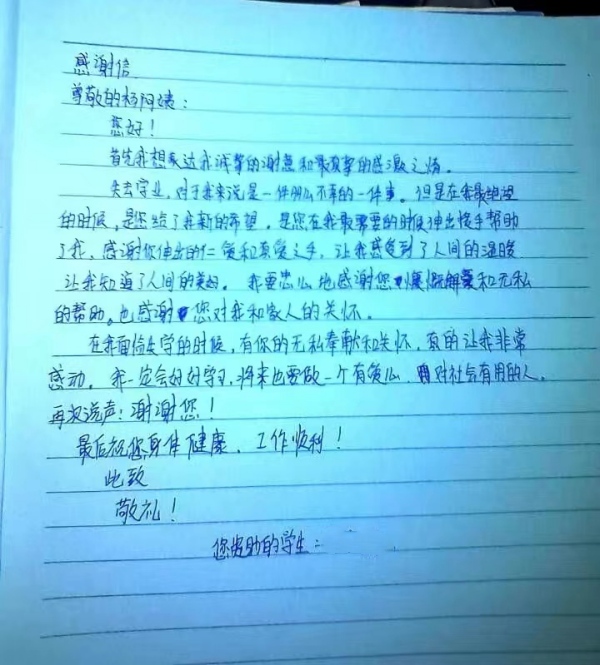 感谢信
尊敬的杨阿姨：
您好！
首先我想表达我诚挚的谢意和最真挚的感激之情。
失去学业，对于我来说是一件那么不幸的一件事。但是在我最绝望
的时候，是您给了我新的希望，是您在我最需要的时候伸出援手帮助
了我，感谢你伸出的仁爱和真爱之手，让我感受到了人间的温暖
让我知道了人间的美好。我要忠心地感谢您慷慨解囊和无私
的帮助。也感谢您对我和家人的关怀。
在我面临失学的时候，有你的无私奉献和关怀，真的让我非常
感动，我一定会好好学习，将来也要做一个有爱心，对社会有用的人。
再次说声：谢谢您！
最后祝您身体健康、工作顺利！
此致
敬礼！
您资助的学生：